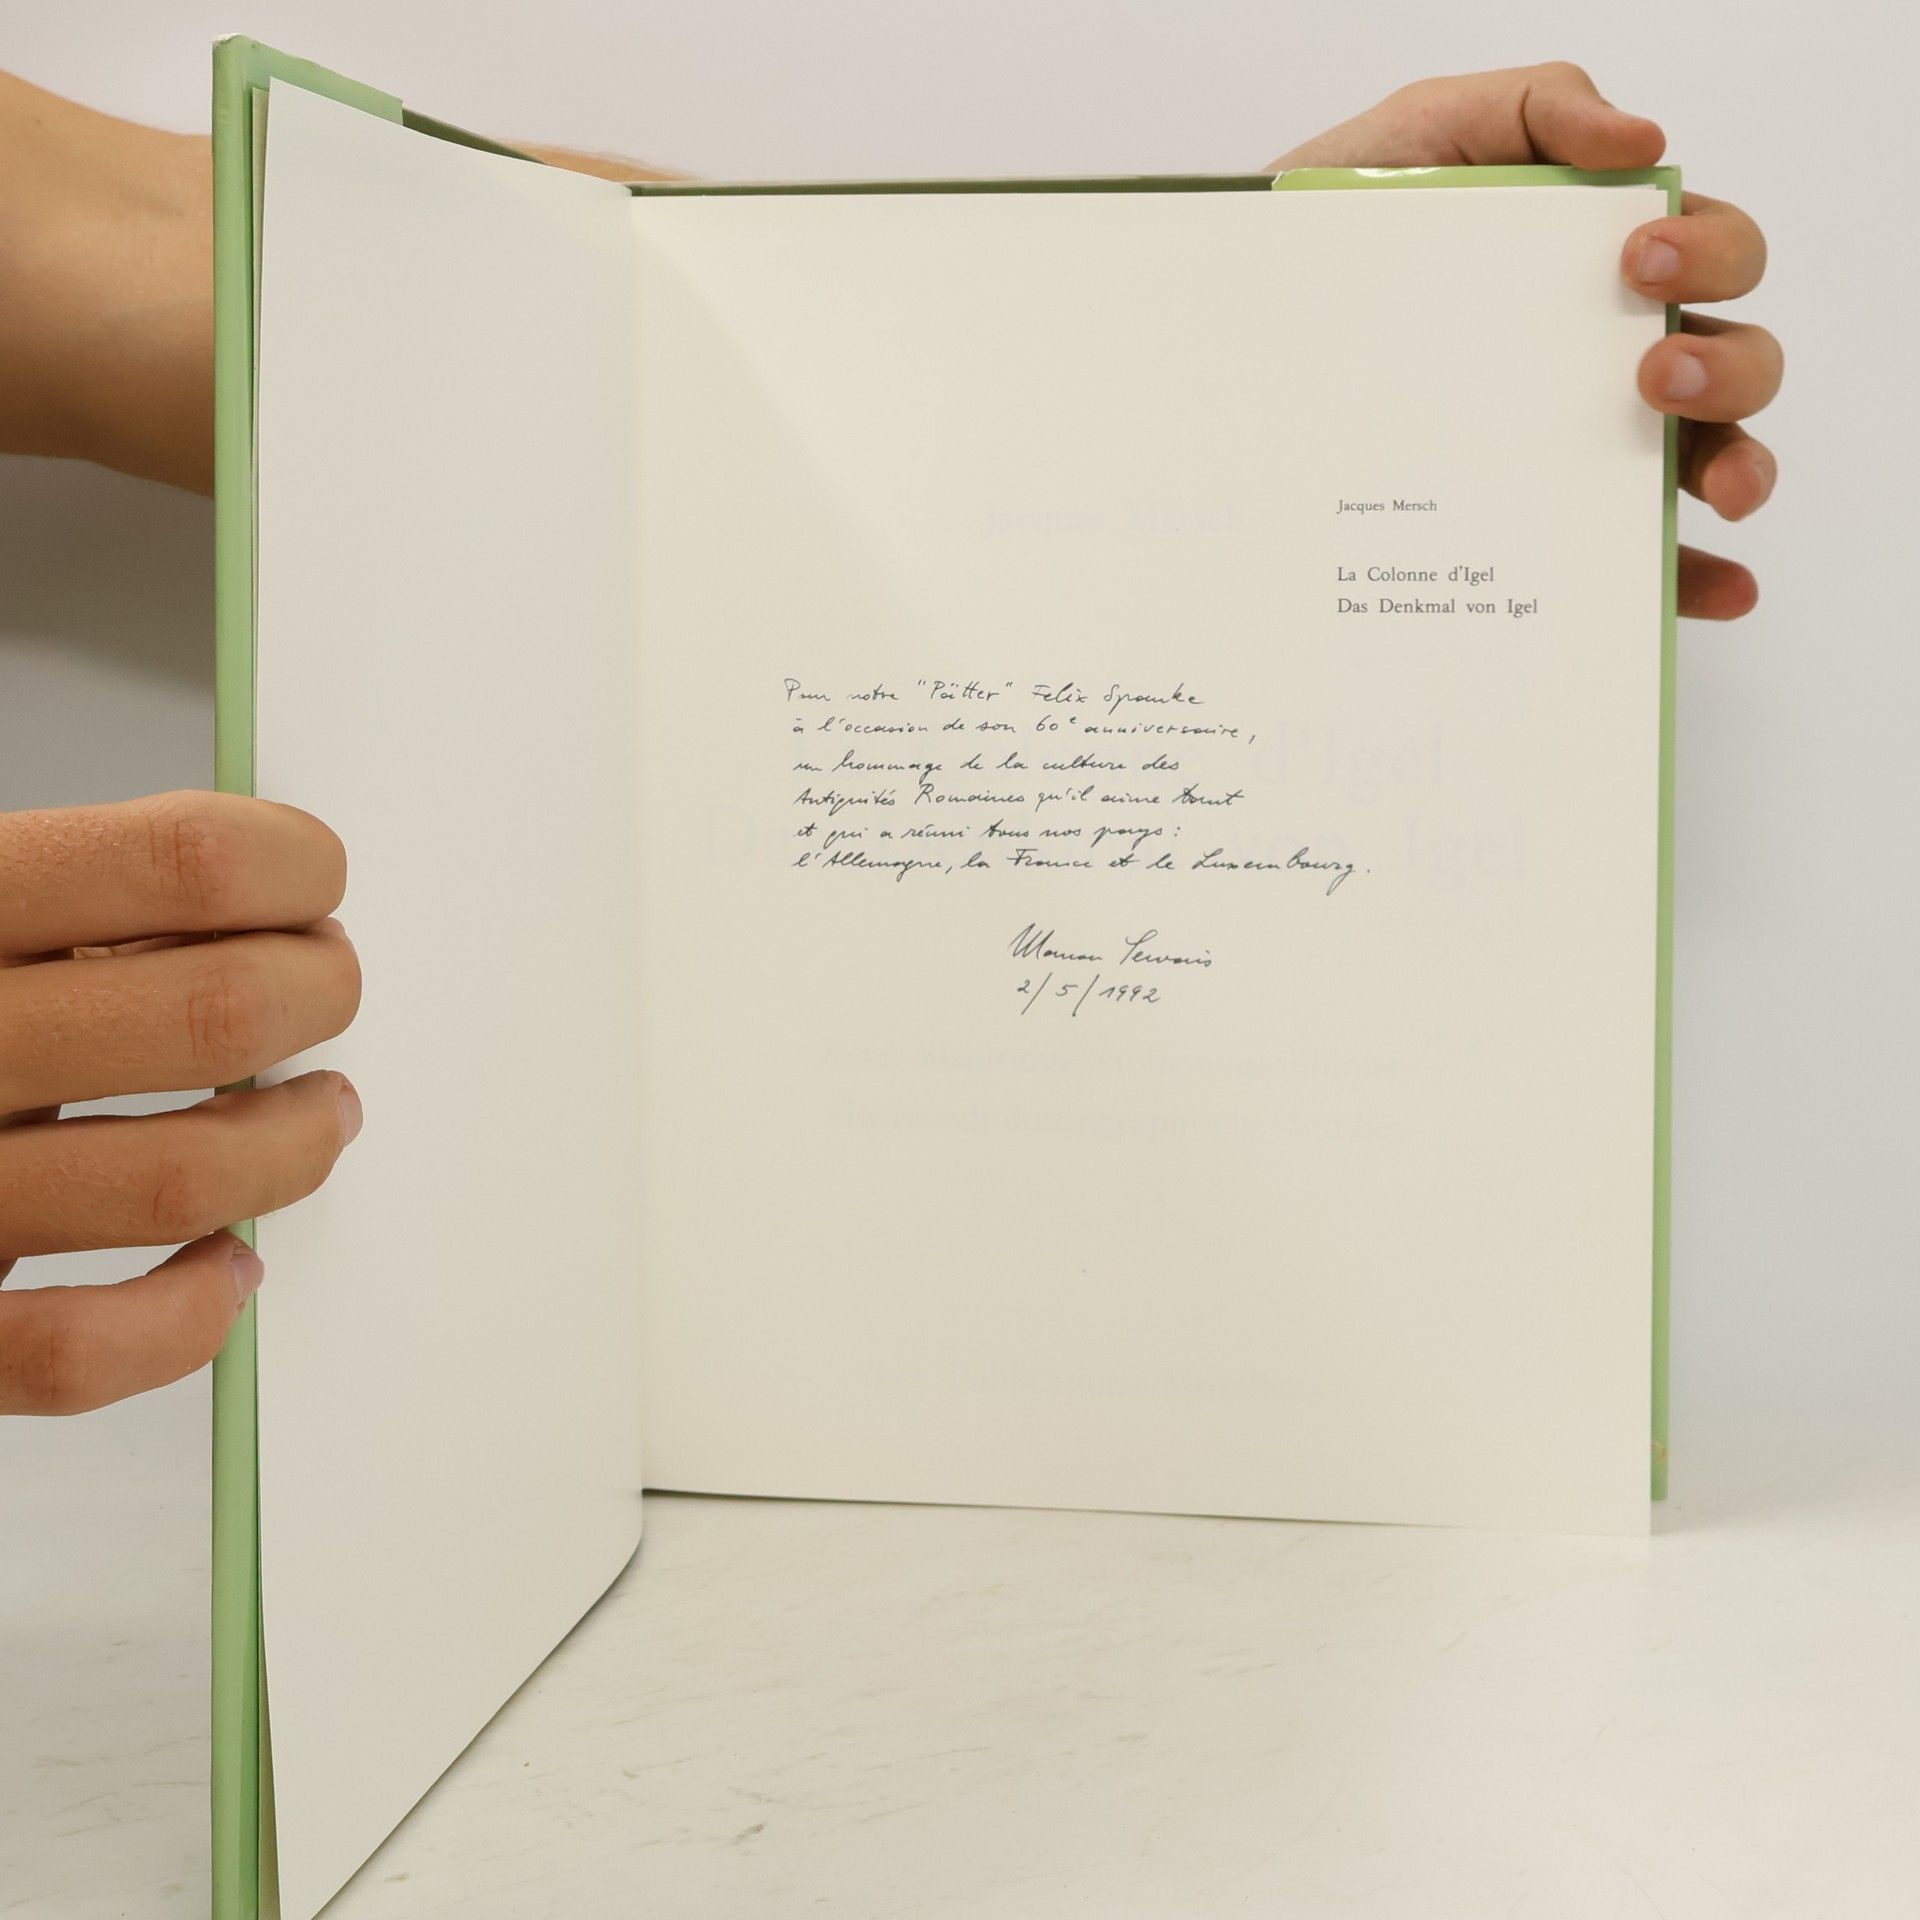 Jacques Mersch
La Colonne d'Igel
Das Denkmal von Igel
Pour notre "Pätter" Felix Spanke
à l'occasion de son 60e anniversaire,
un hommage de la culture des
Antiquités Romaines qu'il aime tant
et qui a réuni tous nos pays :
l'Allemagne, la France et le Luxembourg.
Servais
2/5/1992